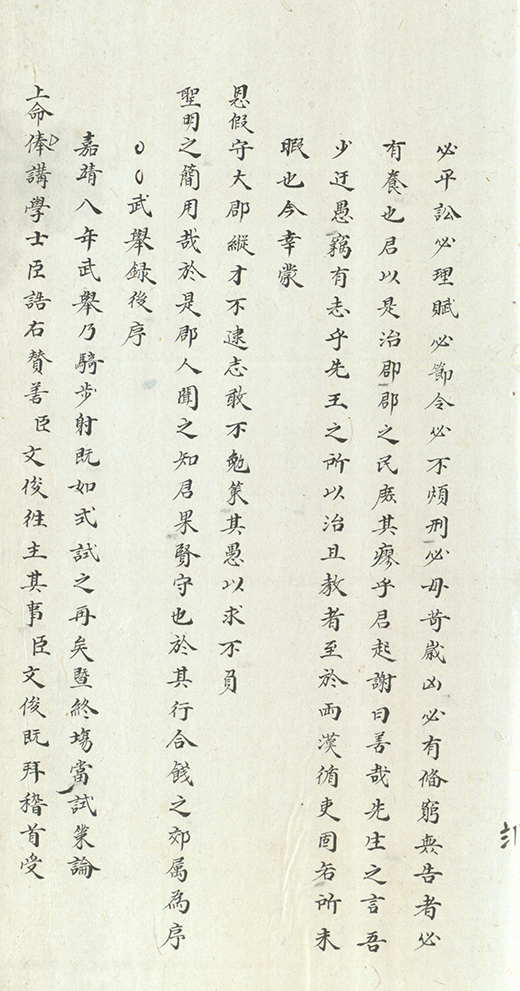 必平訟必理賦必節令必不煩刑必毋苛歲凶必有備窮無告者必
有養也君以是治郡郡之民庶其瘳乎君起謝曰善哉先生之言吾
少迂愚竊有志乎先王之所以治且教者至於兩漢循吏固吾所未
暇也今幸蒙
恩假守大郡縱才不逮志敢不勉策其愚以求不負
聖明之簡用哉於是郡人聞之知君果賢守也於其行合餞之郊属為序
武舉録後序
嘉靖八年武舉乃騎步射既如式試之再矣暨終塲當試策論
上命俸講學士臣誥右賛善臣文俊徃主其事臣文俊既拜稽首受